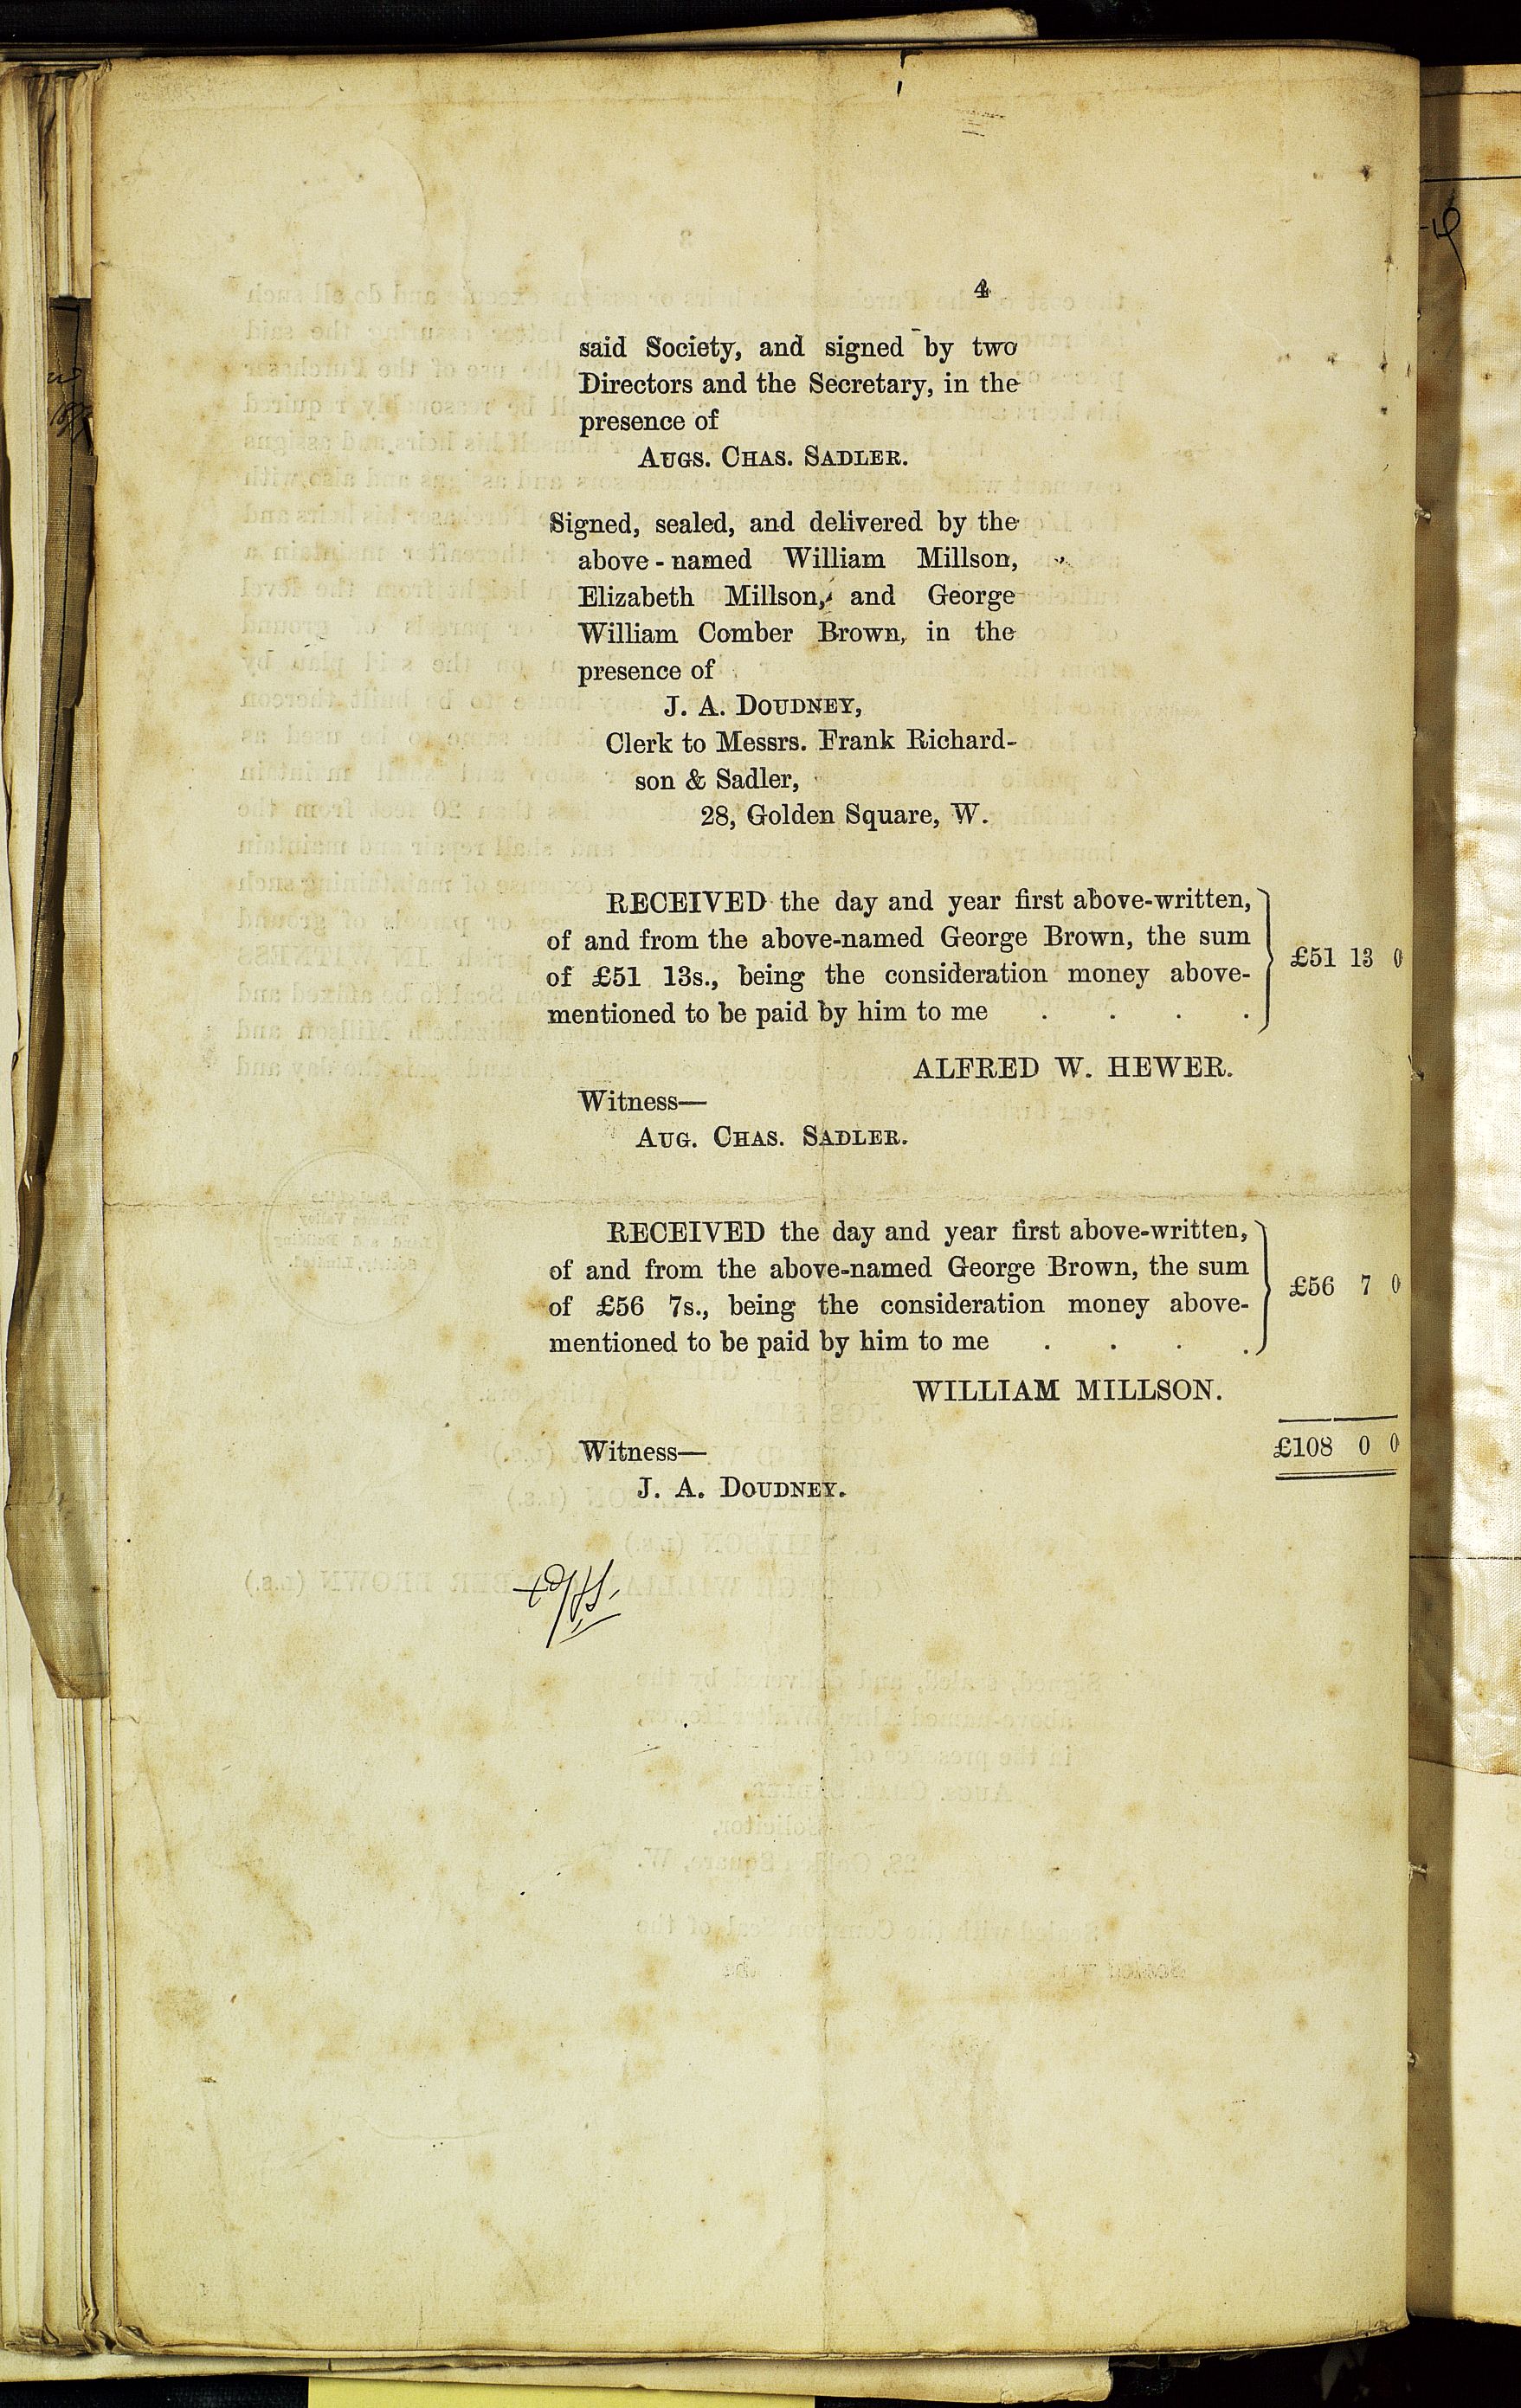 4
said Society, and signed by two
Directors and the Secretary, in the
presence of
AUGS. CHAS. SADLER.
Signed, sealed, and delivered by the
above-named William Millson,
Elizabeth Millson, and George
William Comber Brown, in the
presence of
J. A. DOUDNEY,
Clerk to Messrs. Frank Richard-
son & Sadler,
28, Golden Square, W.
RECEIVED the day and year first above-written,
of and from the above-named George Brown, the sum
of £51 13s., being the consideration money above-
mentioned to be paid by him to me . . . .
£51 13 0
ALFRED W. HEWER.
Witness—
AUG. CHAS. SADLER.
RECEIVED the day and year first above-written,
of and from the above-named George Brown, the sum
of £56 7s., being the consideration money above-
mentioned to be paid by him to me . . . .
£56 7 0
WILLIAM MILLSON.
£108 0 0
Witness—
J. A. DOUDNEY.